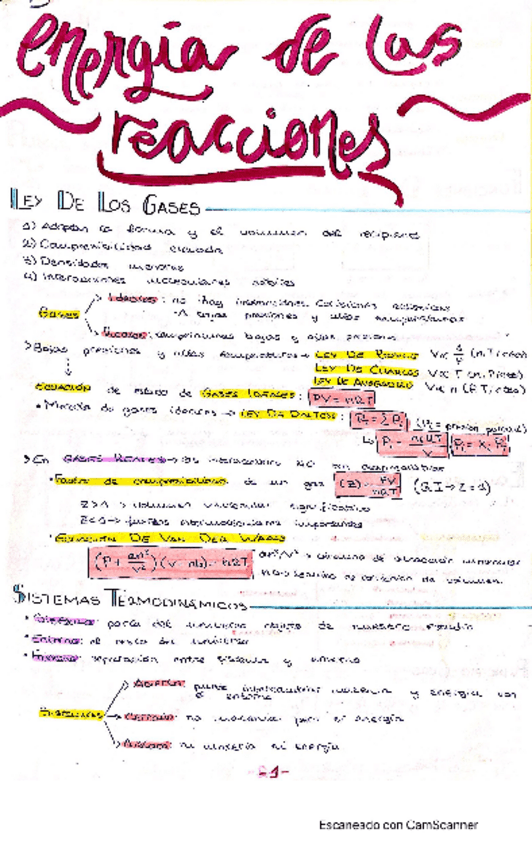 energía de las
reacciones
LEY DE LOS GASES
1) Adoptan la forma y el volumen del recipiente
2) Compresibilidad elevada
3) Densidades menores
4) Interacciones moleculares débiles
Gases
Ideales: no hay interacciones. Colisiones elásticas
A bajas presiones y altas temperaturas
Reales: temperaturas bajas y altas presiones
>Bajas presiones y altas temperaturas → LEY DE BOYLE V∝ 1/P (n,T:ctes)
LEY DE CHARLES V∝T (n,P:ctes)
LEY DE AVOGADRO V∝n (P,T:ctes)
ECUACIÓN de estado de GASES IDEALES: PV=nRT
• Mezcla de gases ideales → LEY DE DALTON: (Pi = presión parcial)
>En GASES REALES → las interacciones NO son despreciables
• Factor de compresibilidad de un gas (Z) = PV/nRT (G.I → Z=1)
Z>1 → volumen molecular significativo
Z<1 → fuerzas intermoleculares importantes
• ECUACIÓN DE VAN DER WAALS
(P + an²/V²)(V-nb) = nRT an²/V² → término de atracción molecular
nb → término de corrección de volumen.
SISTEMAS TERMODINÁMICOS
• Sistema: parte del universo objeto de nuestro estudio
• Entorno: el resto del universo
• Frontera: separación entre sistema y entorno
Sistemas
Abierto: puede intercambiar materia y energía con
el entorno
Cerrado: no materia pero sí energía
Aislado: ni materia ni energía
-1-
Escaneado con CamScanner